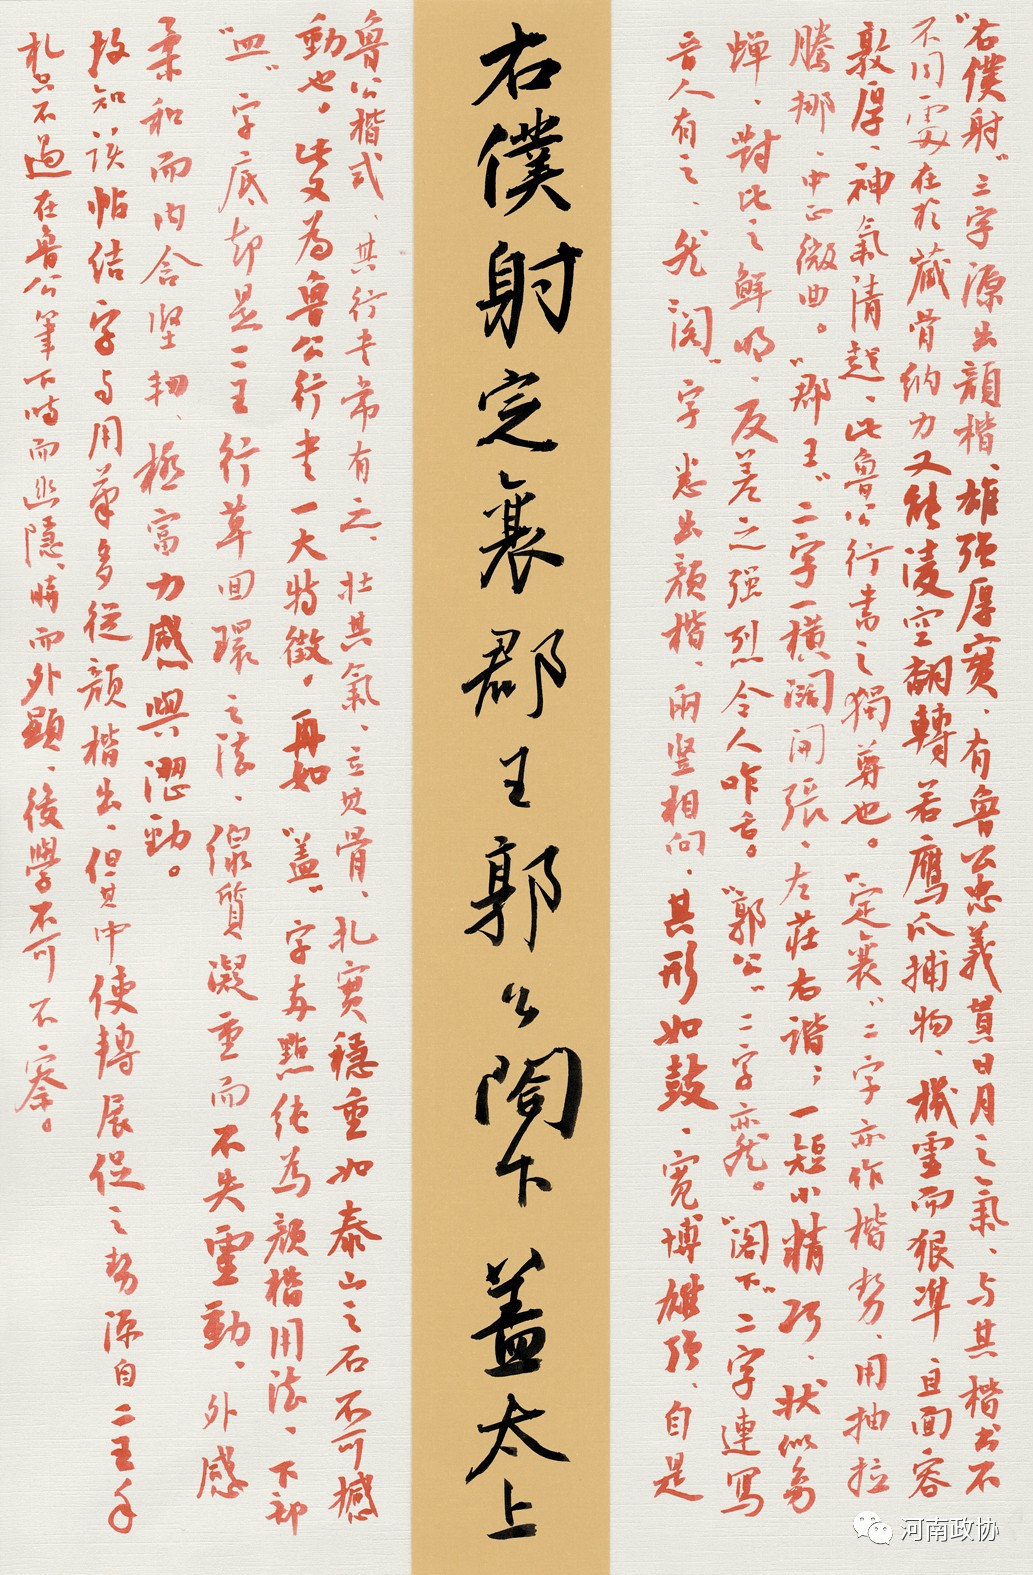 “右僕射”三字源出顏楷、雄强厚實、有魯公忠義貫日月之氣、与其楷书不
不同處在於蔵骨納力又能淩空翻轉若鷹爪捕物、機靈而狠準、且面容
敦厚、神氣清超、此魯公行書之獨尊也。“定襄”二字亦作楷势、用抽拉
騰挪、中正微曲。“郡王”二字一横濶開張、左莊右谐；一短小精巧、状似鸣
蝉、對比之鲜明、反差之强烈令人咋舌。“郭公”二字亦然。“閣下”二字連寫
晋人有之、然“閣”字悉出顏楷、兩竖相向、其形如鼓、寛博雄强、自是
右僕射定襄郡王郭公閤下蓋太上
魯公楷式、其行书常有之、壮其氣、立其骨、扎實穩重如泰山之石不可撼
動也。此又為魯公行书一大特徵。再如“蓋”字每點純為顏楷用法、下部
“皿”字底却是二王行草回環之法、線質凝重而不失靈動、外感
柔和而内含坚韧、極富力感與澀勁。
故知该帖结字与用筆多從顏楷出、但其中使轉展促之势源自二王手
札只不過在魯公筆下時而幽隱、時而外顯、後學不可不察。
河南政协